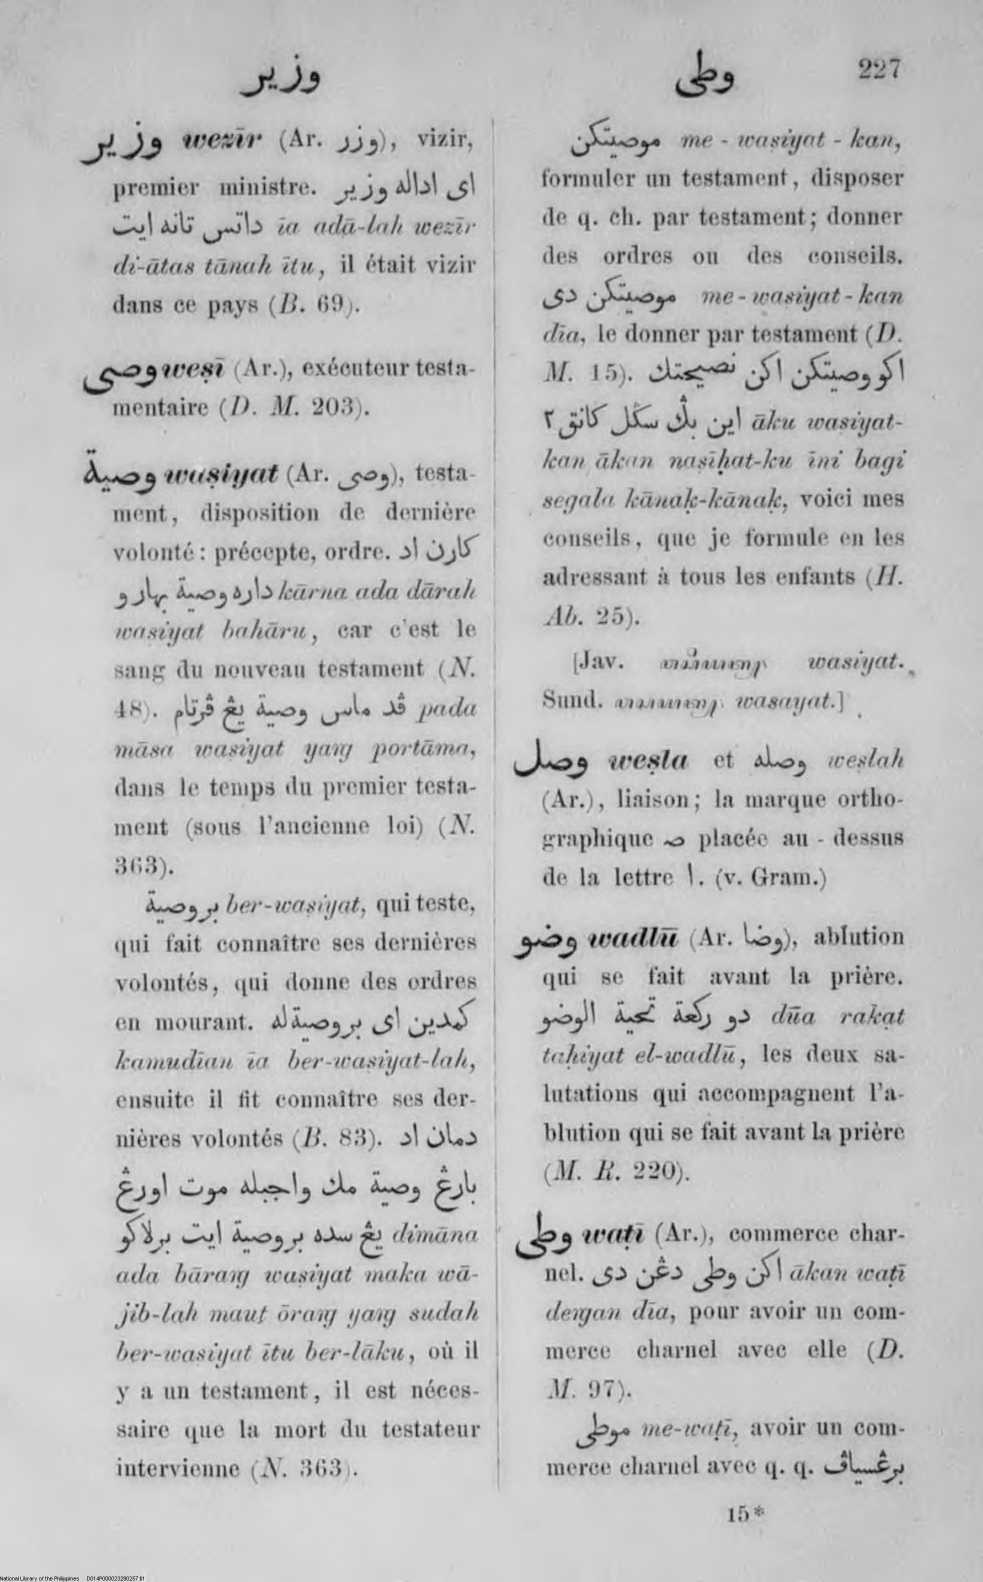 وزير
وطى
227
وزير wezīr (Ar. وزر), vizir,
premier ministre. اى اداله وزير
داتس تانه ايت īa adā-lah wezīr
di-ātas tānah ītu, il était vizir
dans ce pays (B. 69).
وصى weṣī (Ar.), exécuteur testa-
mentaire (D. M. 203).
وصية waṣiyat (Ar. وصى), testa-
ment, disposition de dernière
volonté: précepte, ordre. كارن اد
داره وصية بهارو kārna ada dārah
waṣiyat bahāru, car c'est le
sang du nouveau testament (N.
48). ڤد ماس وصية يڠ ڤرتام pada
māsa waṣiyat yaŋ portāma,
dans le temps du premier testa-
ment (sous l'ancienne loi) (N.
363).
بروصية ber-waṣiyat, qui teste,
qui fait connaître ses dernières
volontés, qui donne des ordres
en mourant. كمدين اى بروصيةله
kamudīan īa ber-waṣiyat-lah,
ensuite il fit connaître ses der-
nières volontés (B. 83). دمان اد
بارڠ وصية مك واجبله موت اورڠ
يڠ سده بروصية ايت برلاكو dimāna
ada bāraŋ waṣiyat maka wā-
jib-lah mauṭ ōraŋ yaŋ sudah
ber-waṣiyat ītu ber-lāku, où il
y a un testament, il est néces-
saire que la mort du testateur
intervienne (N. 363).
موصيتكن me-waṣiyat-kan,
formuler un testament, disposer
de q. ch. par testament; donner
des ordres ou des conseils.
موصيتكن دى me-waṣiyat-kan
dīa, le donner par testament (D.
M. 15). اكو وصيتكن اكن نصيحتك
اين بڬ سڬل كانق٢ āku waṣiyat-
kan ākan naṣīḥat-ku īni bagi
segala kānaḳ-kānaḳ, voici mes
conseils, que je formule en les
adressant à tous les enfants (H.
Ab. 25).
[Jav. wasiyat.
Sund. wasayat.]
وصل weṣla et وصله weṣlah
(Ar.), liaison; la marque ortho-
graphique ص placée au-dessus
de la lettre ا. (v. Gram.)
وضو wadlū (Ar. وضا), ablution
qui se fait avant la prière.
دو ركعة تحية الوضو dūa rakạt
taḥiyat el-wadlū, les deux sa-
lutations qui accompagnent l'a-
blution qui se fait avant la prière
(M. R. 220).
وطى waṭī (Ar.), commerce char-
nel. اكن وطى دڠن دى ākan waṭī
deŋan dīa, pour avoir un com-
merce charnel avec elle (D.
M. 97).
موطى me-waṭī, avoir un com-
merce charnel avec q. q. برڠسياڤ
15*
National Library of the Philippines